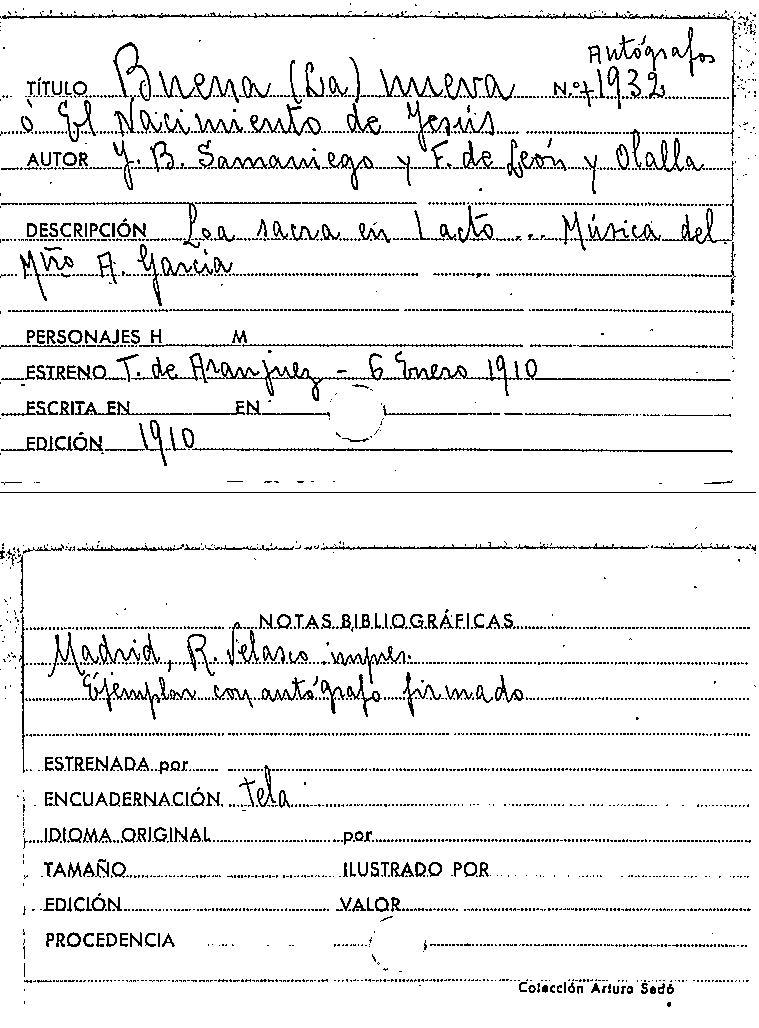 Autógrafos
TÍTULO Buena (La) nueva N.º + 1932
ó El Nacimiento de Jesús
AUTOR J. B. Samaniego y F. de León y Olalla
DESCRIPCIÓN Loa sacra en 1 acto ... Música del
Mtro A. García
PERSONAJES H M
ESTRENO T. de Aranjuez - 6 Enero 1910
ESCRITA EN EN
EDICIÓN 1910
NOTAS BIBLIOGRÁFICAS
Madrid, R. Velasco impres.
Ejemplar con autógrafo firmado
ESTRENADA por
ENCUADERNACIÓN tela
IDIOMA ORIGINAL por
TAMAÑO ILUSTRADO POR
EDICIÓN VALOR
PROCEDENCIA
Colección Arturo Sedó